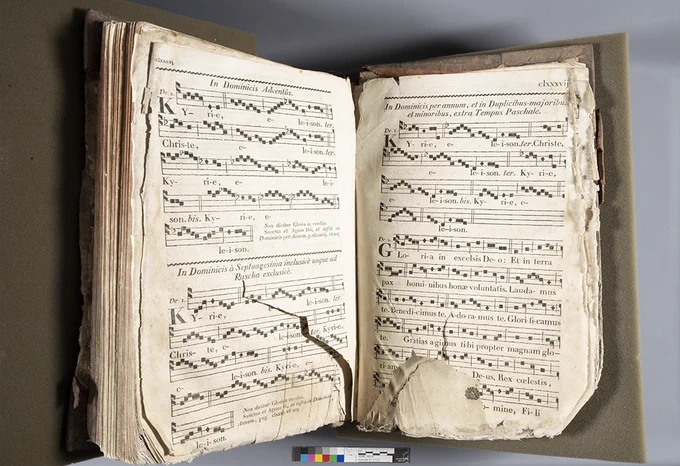 In Dominicis Adventûs.
De 1.
KY- ri-e, e- le-i-son. ter.
Chris-te, e- le-i-son. ter.
Ky- ri-e, e- le-i-
son. bis. Ky- ri-e, e-
le-i-son.
Non dicitur Gloria
Sanctus et Agnus Dei, ut infrà in
Dominicis per annum,
In Dominicis à Septuagesima inclusivè usque ad
Pascha exclusivè.
De 1.
KY- ri-e, e- le-i-son. ter.
Chris- te, e- le-i-son. ter. Ky-ri-e,
e- le-i-son. bis. Ky-ri-e, e-
le-i-son.
Non dicitur Gloria
Sanctus et Agnus
clxxxvij
In Dominicis per annum, et in Duplicibus-majoribus
et minoribus, extra Tempus Paschale.
De 1.
KY- ri-e, e- le-i-son. ter. Christe,
e- le-i-son. ter. Ky- ri-e,
e- le-i-son. bis. Ky-ri-e, e-
le-i-son.
GLo- ri-a in excelsis De-o: Et in terra
pax homi-nibus bonæ voluntatis. Lauda- mus
te. Bene-dicimus te. A-do-ra-mus te. Glori-fi-camus
te. Gratias a-gimus ti-bi propter magnam glo-
ri-am De-us, Rex cœlestis,
mine, Fi-li